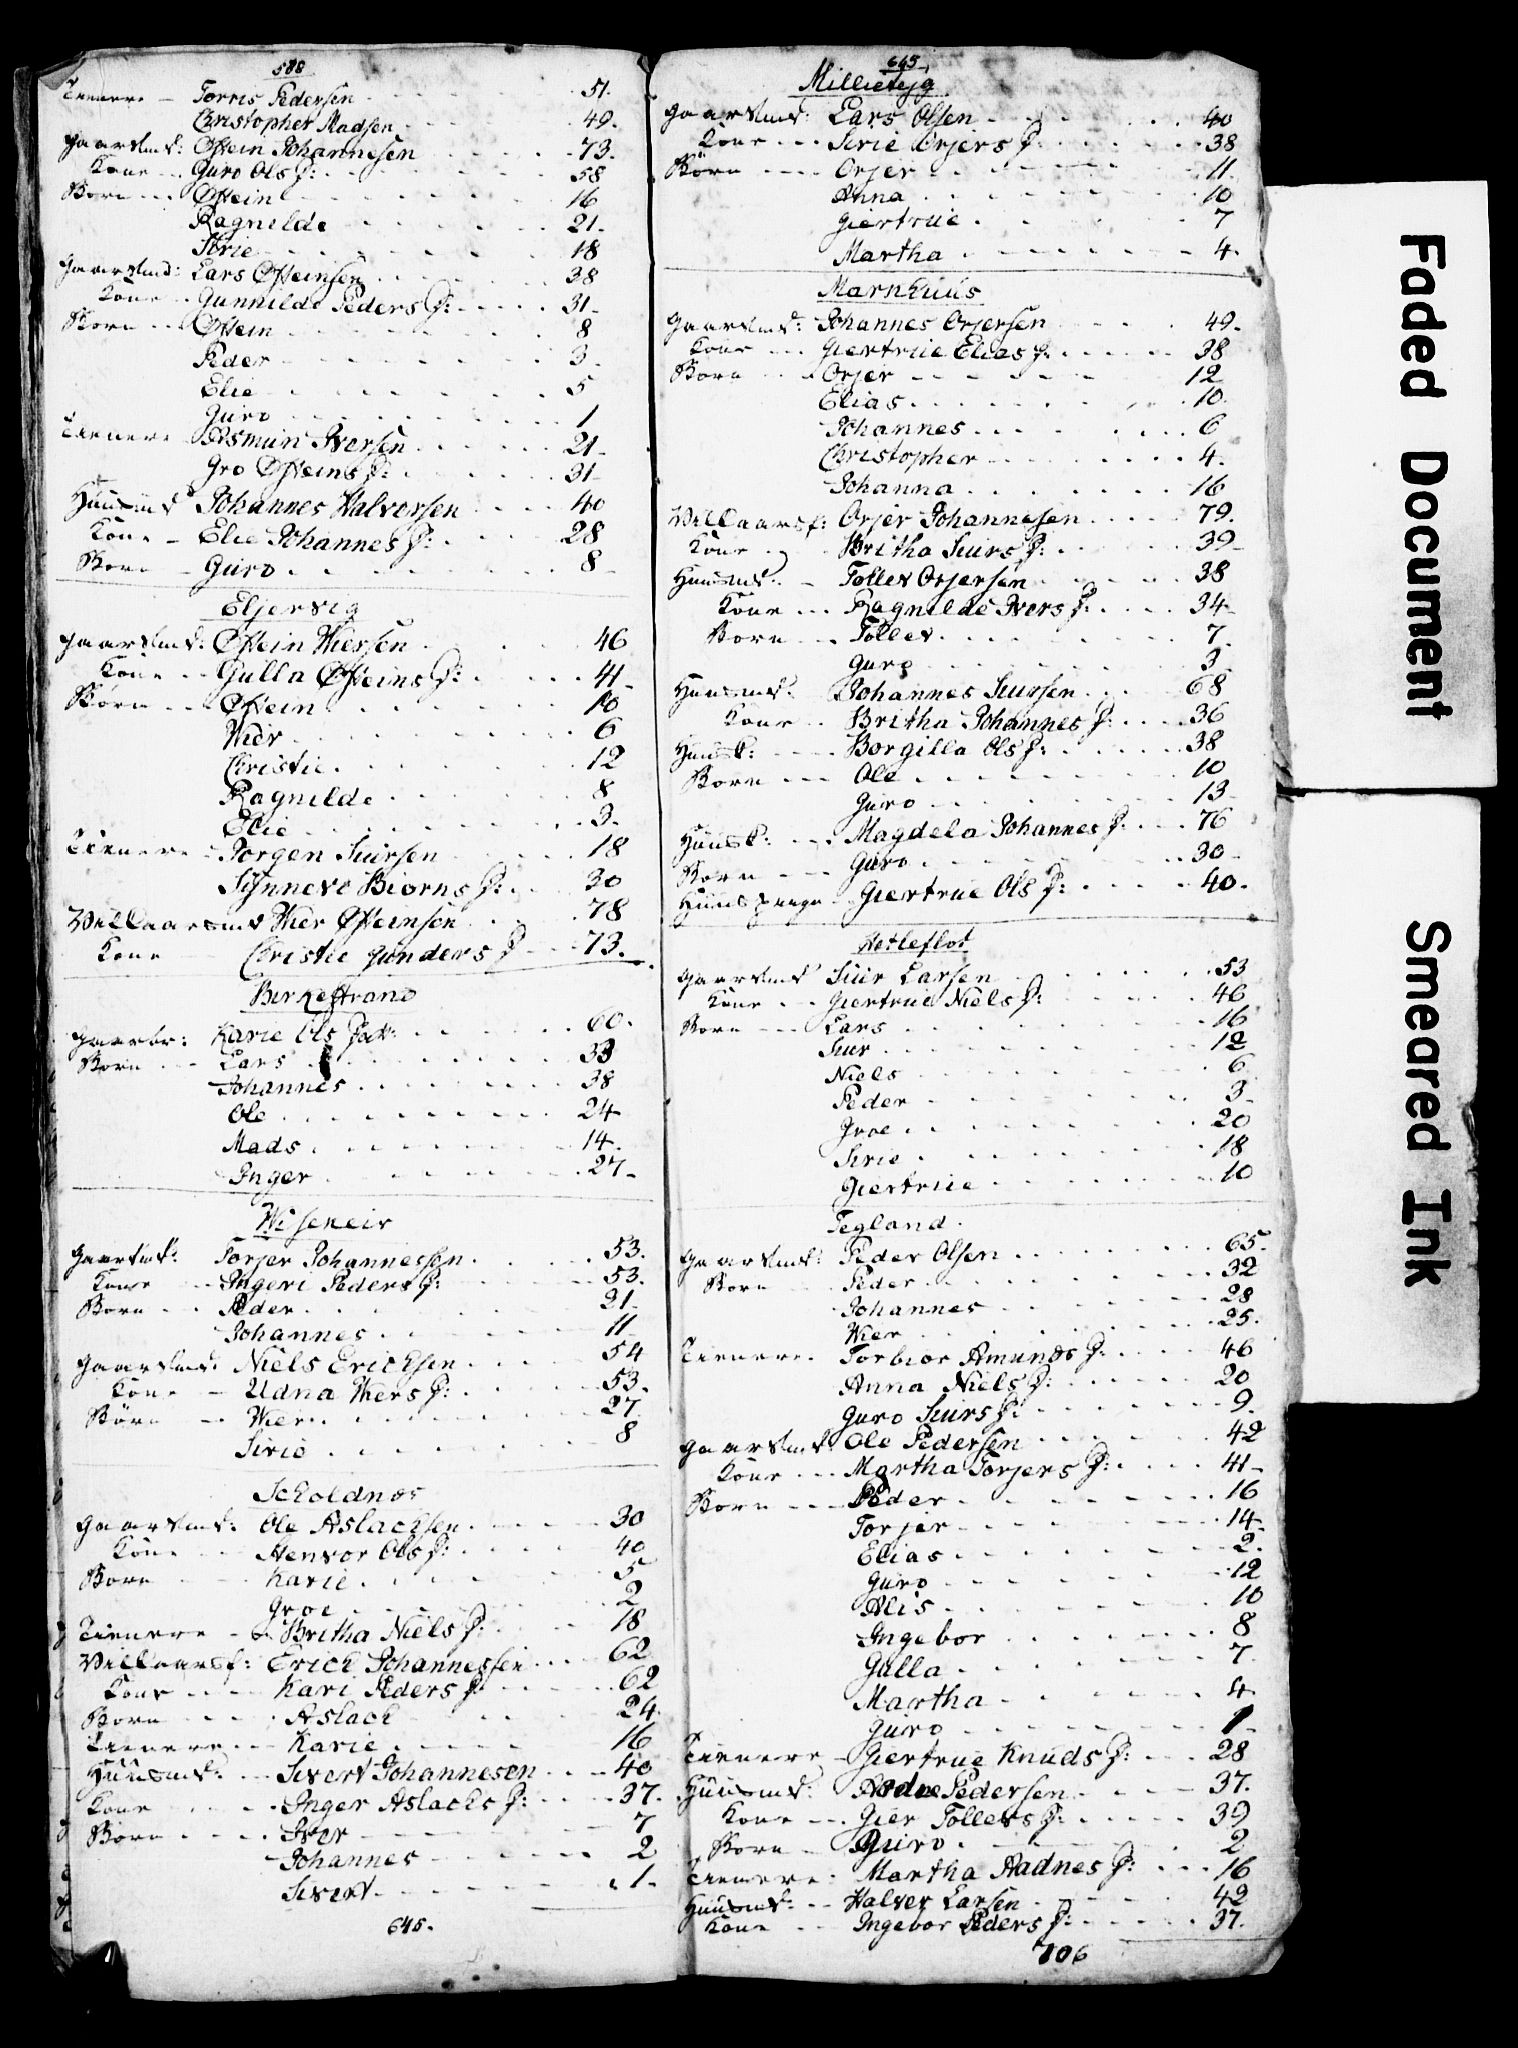 588
Tienere - Torris Pedersen 51.
Christopher Madsen 49.
gaardmd: Østein Johannesen 73.
Kone Guro Ols D: 58
Børn Østein 16
Ragnilde 21.
Sirie 18
gaardmd: Lars Østeinsen 38
Kone Gunnilde Peders D: 31
Børn Østein 8
Peder 3
Elie 5
Guro 1
Tienere Asmun Iversen 21
Gro Østeins D: 31
Huusmd Johannes Halvorsen 40
Kone - Elie Johannes D: 28
Børn - Guro 8
Eljervig
gaardmd: Østein Wiersen 46
Kone Gulla Østeins D: 41
Børn Østein 10
Wier 6
Christie 12
Ragnilde 8
Elie 3.
Tienere Jorgen Siursen 18
Synneve Biorns D: 30
Villaarsmd Wier Østeinsen 78
Kone Christie gunders D 73.
Birkestrand
gaardbr: Karie Ols Dat: 60.
Børn Lars 33
Johannes 38
Ole 24
Mads 14
Inger 27
Wiseneir
gaardmd: Torjer Johannessen 53.
Kone Ingeri Peders D: 53.
Børn Peder 21
Johannes 11
gaardmd: Niels Ericksen 54
Kone - Udna Wiers D: 53.
Børn Wier 27
Sirie 8
Scholdnæs
gaardmd: Ole Aslachsen 30
Kone Henvor Ols D: 40
Børn Karie 5
Groe 2
Tienere Britha Niels D: 18
Villaarsf: Erich Johannessen 62
Kone Kari Peders D 62
Børn Aslach 24
Tienere Karie 16
Huusmd: Sivert Johannesen 40
Kone Inger Aslachs D: 37.
Børn Iver 7
Johannes 2
Sivert 1
645.
645
Millieteig
gaardmd: Lars Olsen 40
Kone Sirie Orjers D: 38
Børn Orjer 11.
Anna 10
Giertrue 7
Martha 4.
Marnhuus
gaardmd: Johannes Orjersen 49.
Kone Giertrue Elias D: 38
Børn Orjer 12
Elias 10.
Johannes 6
Christopher 4.
Johanna 16
Villaarsf: Orjer Johannesen 79.
Kone Britha Siurs D: 39
Huusmd: - Tollev Orjersen 38
Kone Ragnilde Ivers D: 34
Børn Tollev 7.
Guro 3
Huusmd: Johannes Siursen 68
Kone Britha Johannes D: 36
Huusk: Borgilla Ols D: 38
Børn Ole 10
Guro 13
Huusk: Magdela Johannes D: 76
Børn Guro 30
Huuspige Giertrue Ols D: 40.
Hetleflot
gaardmd Siur Larsen 53
Kone Giertrue Niels D: 46
Børn Lars 16
Siur 12
Niels 6
Peder 3
Groe 20
Sirie 18
Giertrue 10
Tegland.
gaardmd: Peder Olsen 65.
Børn Peder 32
Johannes 28
Wier 25.
Tienere. Torbior Amunds D: 46
Anna Niels D: 20
Guro Siurs D: 9.
gaardmd: Ole Pedersen 42
Kone Martha Torjers D: 41
Børn Peder 16
Torjer 14
Elias 2.
Guro 12
Alis 10
Ingebor 8
Gulla 7
Martha 4
Guro 1
Tienere - Giertrue Knuds D: 28
Huusmd: Aadne Pedersen 37.
Kone Gier Tollevs D: 39
Børn Guro 2
Tienere: Martha Aadnes D: 16
Huusmd: Halver Larsen 42
Kone Ingebor Peders D: 37.
706
Faded Document
Smeared Ink